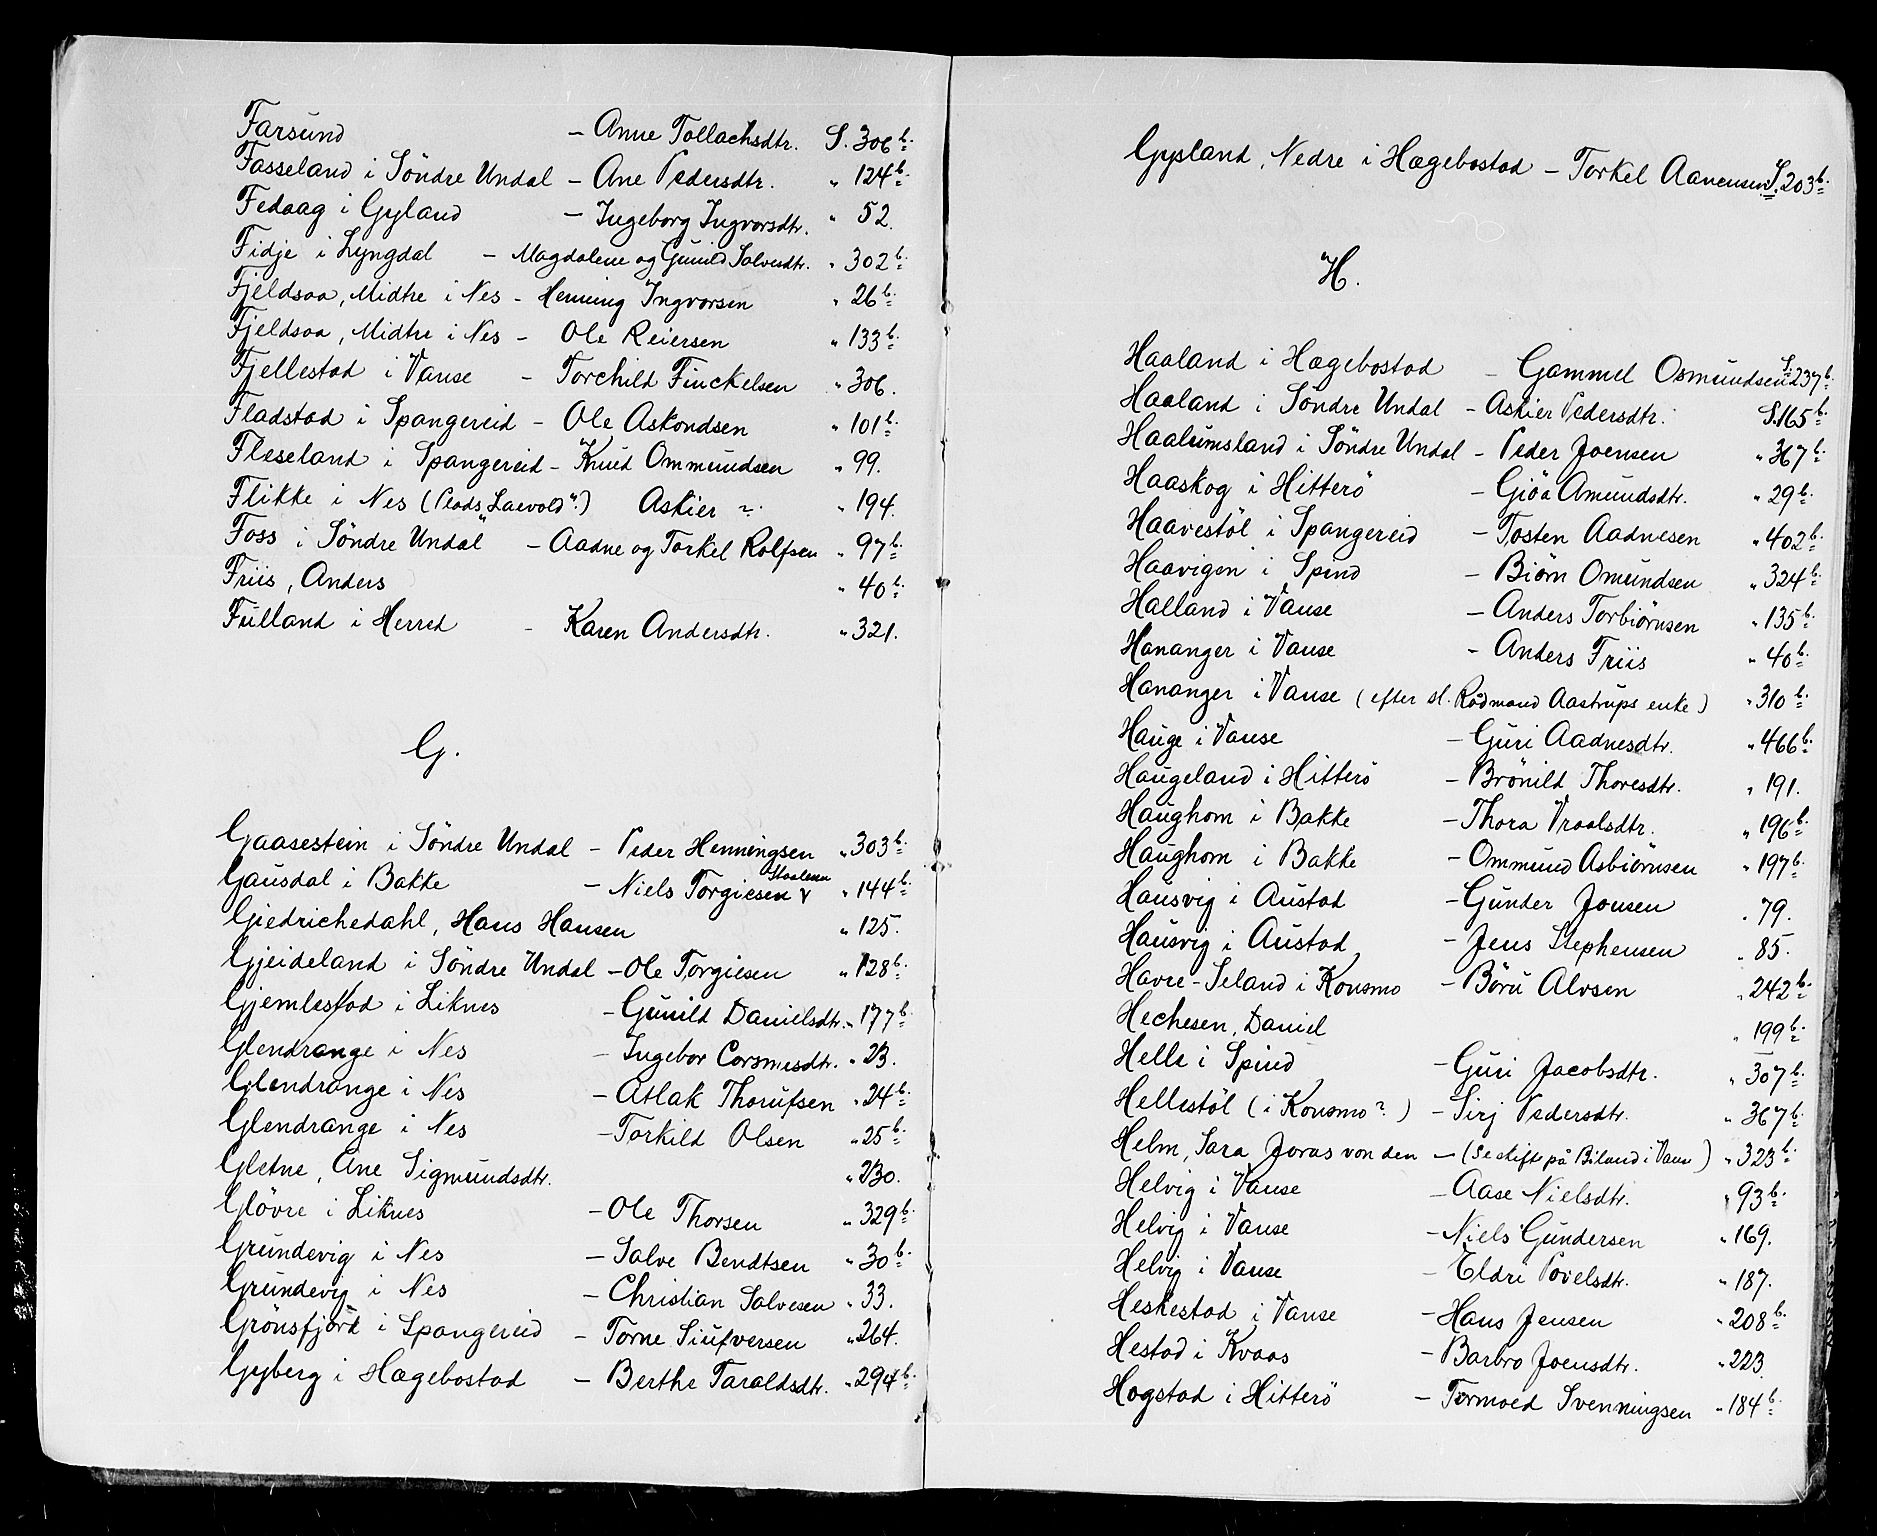 Farsund - Anne Tollachsdtr. S. 306 b.
Fasseland i Söndre Undal - Ane Pedersdtr. " 124 b.
Fedaag i Gyland - Ingeborg Ingvarsdtr. " 52.
Fidje i Lyngdal - Magdalene og Gunild Salvesdtr. " 302 b.
Fjeldsaa, Midtre i Nes - Henning Ingvarsen " 26 b.
Fjeldsaa, Midtre i Nes - Ole Reiersen " 133 b.
Fjellestad i Vanse - Torchild Finckelsen " 306.
Fladstad i Spangereid - Ole Askondsen " 101 b.
Fleseland i Spangereid - Knud Ommundsen " 99.
Flikke i Nes (Plads "Laevold"?) Askier ? " 194.
Foss i Söndre Undal - Aadne og Torkel Rolfsen " 97 b.
Friis, Anders " 40 b.
Fulland i Herred - Karen Andersdtr. " 321.
G.
Gaasestein i Söndre Undal - Peder Henningsen " 303 b.
Gausdal i Bakke - Niels Torgiesen Staalesen " 144 b.
Giedrichedahl, Hans Hansen " 125.
Gjeideland i Söndre Undal - Ole Torgiesen " 128 b.
Gjemlestad i Liknes - Gunild Danielsdtr. " 177 b.
Glendrange i Nes - Ingebor Corsmesdtr. " 23.
Glendrange i Nes - Atlak Thorufsen " 24 b.
Glendrange i Nes - Torkild Olsen " 25 b.
Gletne, Ane Sigmundsdtr. " 230.
Glövre i Liknes - Ole Thorsen " 329 b.
Grundevig i Nes - Salve Bendtsen " 30 b.
Grundevig i Nes - Christian Salvesen " 33.
Grönsfjord i Spangereid - Torne Siufversen " 264.
Gyberg i Hægebostad - Berthe Taraldsdtr. " 294 b.
Gysland, Nedre i Hægebostad - Torkel Aanensen S. 203 b.
H.
Haaland i Hægebostad - Gammel Osmundsen S. 237 b.
Haaland i Söndre Undal - Askier Pedersdtr. S. 165 b.
Haalumsland i Söndre Undal - Peder Joensen " 367 b.
Haaskog i Hitterö - Giöa Amundsdtr. " 29 b.
Haavestöl i Spangereid - Tosten Aadnesen " 402 b.
Haavigen i Spind - Biörn Omundsen " 324 b.
Halland i Vanse - Anders Torbiörnsen " 135 b.
Hananger i Vanse - Anders Friis " 40 b.
Hananger i Vanse (efter sl. Rådmand Aastrups enke) " 310 b.
Hauge i Vanse - Guri Aadnesdtr. " 466 b.
Haugeland i Hitterö - Brönild Thoresdtr. " 191.
Haughom i Bakke - Thora Vraalsdtr. " 196 b.
Haughom i Bakke - Ommund Asbiörnsen " 197 b.
Hausvig i Austad - Gunder Jonsen " 79.
Hausvig i Austad - Jens Stephensen " 85.
Havre-Seland i Konsmo - Böru Alvsen " 242 b.
Hechesen, Daniel " 199 b.
Helle i Spind - Guri Jacobsdtr. " 307 b.
Hellestöl (i Konsmo?) - Sirj Pedersdtr. " 367 b.
Helm, Sara Joras von den - (Se skift på Biland i Vanse) " 323 b.
Helvig i Vanse - Aase Nielsdtr. " 93 b.
Helvig i Vanse - Niels Gundersen " 169.
Helvig i Vanse - Eldri Povelsdtr. " 187.
Heskestad i Vanse - Hans Jensen " 208 b.
Hestad i Kvaas - Barbro Joensdtr. " 223.
Hogstad i Hitterö - Tormoed Svenningsen " 184 b.